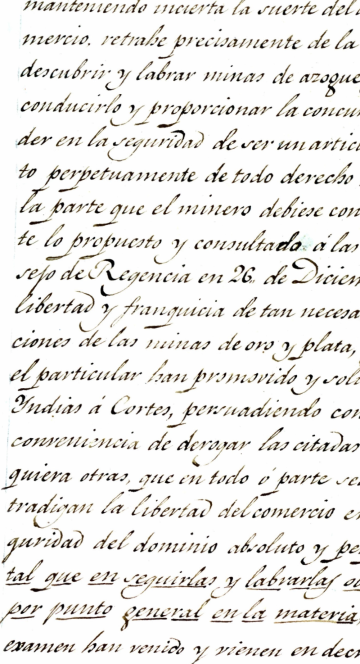 manteniendo incierta la suerte del c
mercio, retrahe precisamente de la
descubrir y labrar minas de azogue
conducirlo y proporcionar la concur
der en la seguridad de ser un artic
to perpetuamente de todo derecho
la parte que el minero debiese con
te lo propuesto y consultado á las
sejo de Regencia en 26, de Diciem
libertad y franquicia de tan necesa
ciones de las minas de oro y plata,
el particular han promovido y soli
Yndias á Cortes, persuadiendo con
conveniencia de derogar las citadas
quiera otras, que en todo ó parte se
tradigan la libertad del comercio e
guridad del dominio absoluto y pe
tal que en seguirlas y labrarlas
por punto general en la materia,
examen han venido y vienen en decr